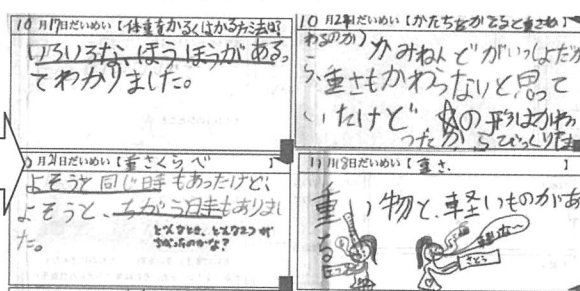 10月17日だいめい【体重をかるくはかる方法は?
いろいろなほうほうがあるっ
てわかりました。
10月24日だいめい【かたちをかえると重さもか
わるのか】
かみねんどがいっしょだか
ら、重さもかわらないと思って
いたけど☆の形はかわっ
ったからびっくりした
月21日だいめい【重さくらべ】
よそうと同じ時もあったけど、
よそうと、ちがう時もありまし
た。
どんなとき、どんなところが
ちがったのかな?
11月8日だいめい【重さ
重い物と、軽いものがあ
さとう